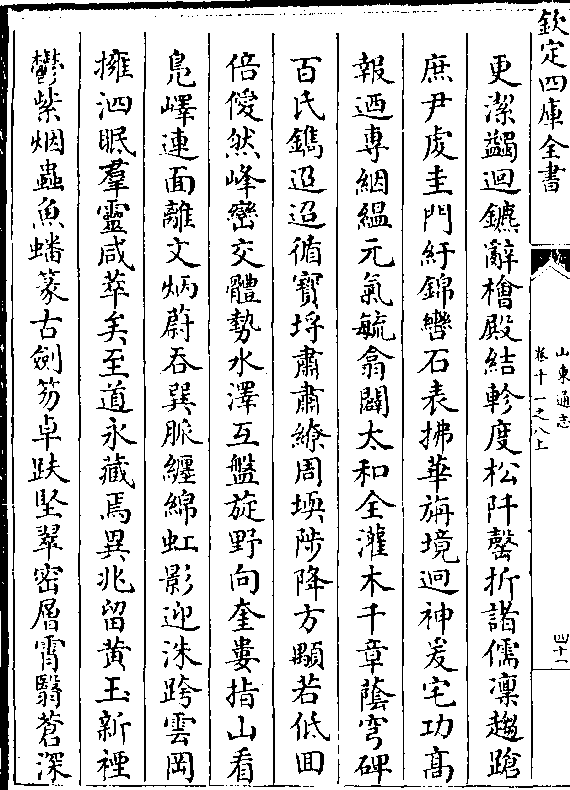 欽定四庫全書
山東通志
卷十一之八上
四十一
更潔蠲迴鑣辭檜殿結軫度松阡罄折諸儒凜趨蹌
庶尹虔圭門紆錦轡石表拂華旃境迥神爰宅功高
報迺專絪縕元氣毓翕闢太和全灌木千章蔭穹碑
百氏鐫迢迢循寶埒肅肅繚周堧陟降方顒若低回
倍僾然峰巒交體勢水澤互盤旋野向奎婁指山看
鳧嶧連面離文炳蔚吞巽脈纏綿虹影迎洙跨雲岡
擁泗眠羣靈咸萃矣至道永藏焉異兆留黄玉新禋
鬱紫烟蟲魚蟠篆古劍笏卓趺堅翠密層霄翳蒼深